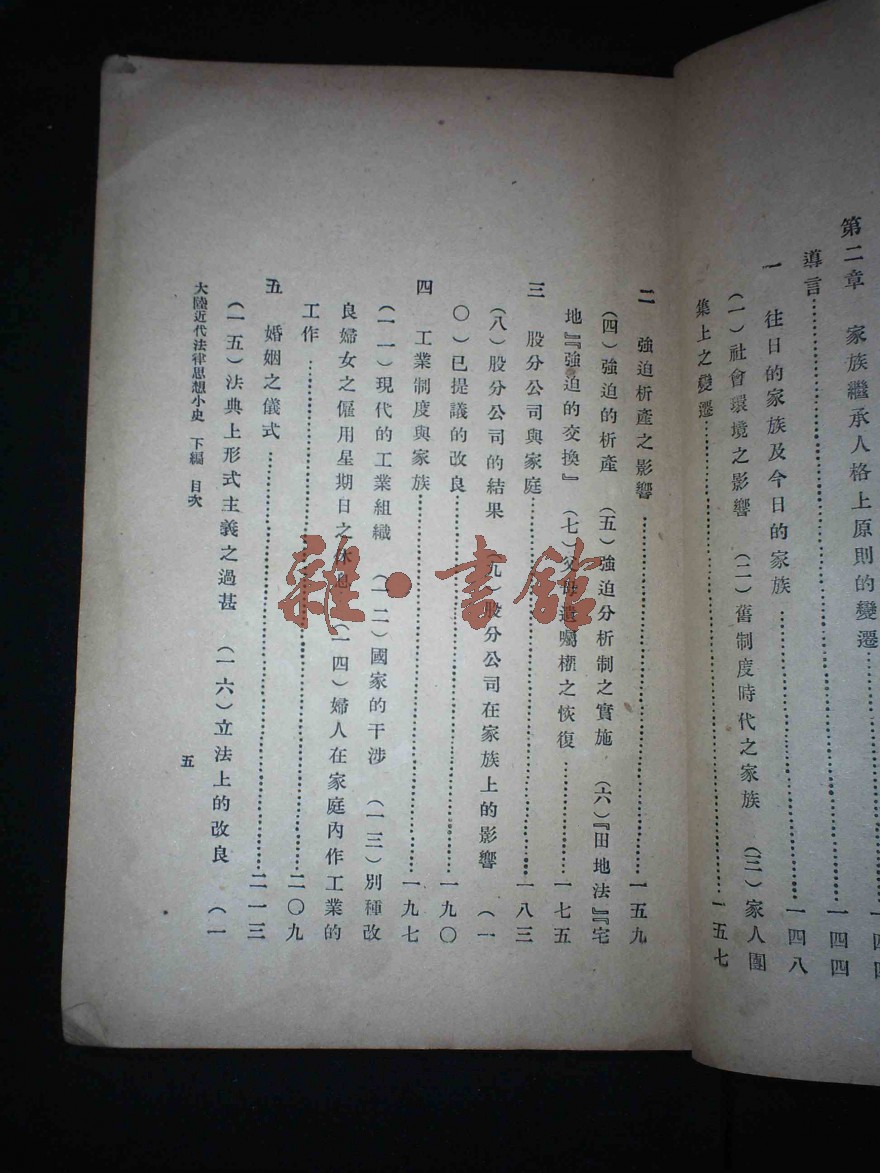 第二章　家族繼承人格上原則的變遷……一四四
導言……一四四
一　往日的家族及今日的家族……一四八
（一）社會環境之影響　（二）舊制度時代之家族　（三）家人團
集上之變遷……一五七
二　強迫析產之影響……一五九
（四）強迫的析產　（五）強迫分析制之實施　（六）『田地法』『宅
地』『強迫的交換』　（七）父母遺囑權之恢復……一七五
三　股分公司與家庭……一八三
（八）股分公司的結果　（九）股分公司在家族上的影響　（一
〇）已提議的改良……一九〇
四　工業制度與家族……一九七
（一一）現代的工業組織　（一二）國家的干涉　（一三）別種改
良婦女之僱用星期日之休息　（一四）婦人在家庭內作工業的
工作……二〇九
五　婚姻之儀式……二一三
（一五）法典上形式主義之過甚　（一六）立法上的改良　（一
大陸近代法律思想小史　下編　目次
五
雜·書館